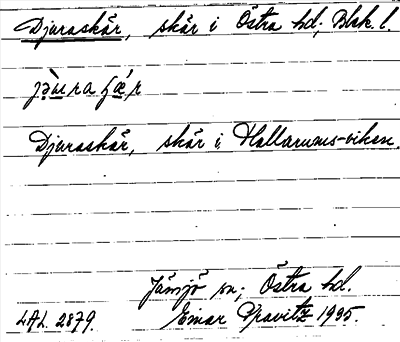 Djuraskär, skär i Östra hd; Blek. l.
Djuraskär, skär i Hallarums-viken.
Jämjö sn; Östra hd.
LAL. 2879. Einar Kravitz 1935.